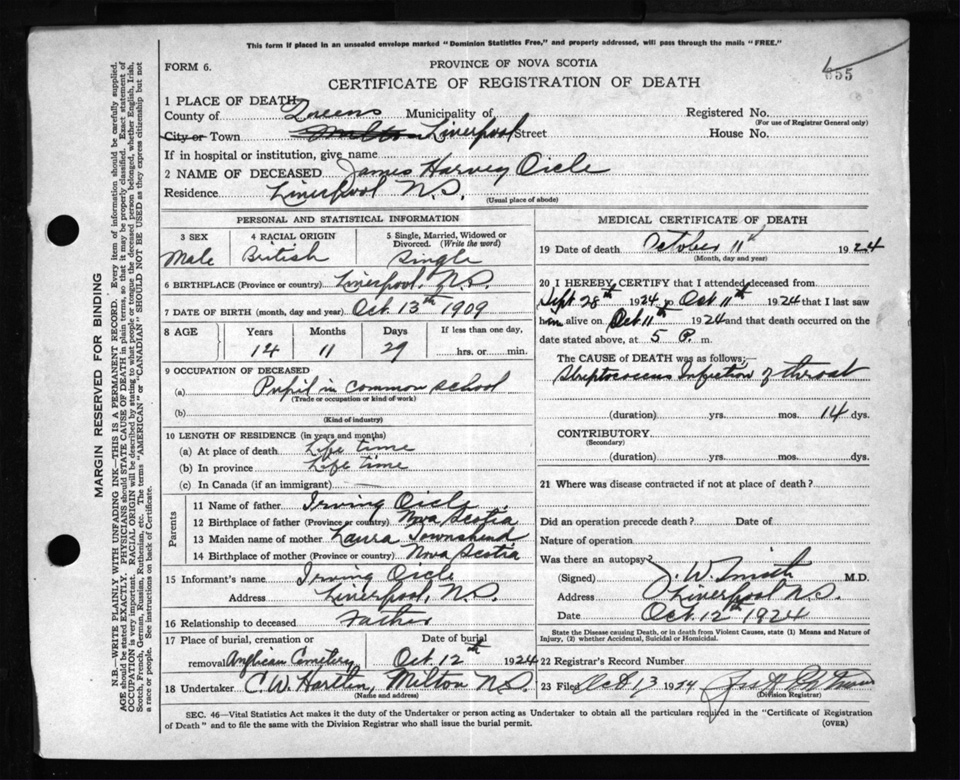 This form if placed in an unsealed envelope marked "Dominion Statistics Free," and properly addressed, will pass through the mails "FREE."
FORM 6.
PROVINCE OF NOVA SCOTIA
655
CERTIFICATE OF REGISTRATION OF DEATH
1 PLACE OF DEATH
County of Queens Municipality of Registered No.
(For use of Registrar General only)
City or Town Milton Liverpool Street House No.
If in hospital or institution, give name
2 NAME OF DECEASED James Harvey Oicle
Residence Liverpool N.S.
(Usual place of abode)
PERSONAL AND STATISTICAL INFORMATION
3 SEX 4 RACIAL ORIGIN 5 Single, Married, Widowed or Divorced. (Write the word)
Male British Single
6 BIRTHPLACE (Province or country) Liverpool, N.S.
7 DATE OF BIRTH (month, day and year) Oct. 13th 1909
8 AGE Years Months Days If less than one day,
14 11 29 hrs. or min.
9 OCCUPATION OF DECEASED
(a) Pupil in common school
(Trade or occupation or kind of work)
(b)
(Kind of industry)
10 LENGTH OF RESIDENCE (in years and months)
(a) At place of death Life time
(b) In province Life time
(c) In Canada (if an immigrant)
Parents
11 Name of father Irving Oicle
12 Birthplace of father (Province or country) Nova Scotia
13 Maiden name of mother Laura Townshend
14 Birthplace of mother (Province or country) Nova Scotia
15 Informant's name Irving Oicle
Address Liverpool, N.S.
16 Relationship to deceased Father
17 Place of burial, cremation or Date of burial
removal Anglican Cemetery Oct. 12th 1924
18 Undertaker C. W. Harlen, Milton N.S.
(Name and address)
MEDICAL CERTIFICATE OF DEATH
19 Date of death October 11 1924
(Month, day and year)
20 I HEREBY CERTIFY that I attended deceased from
Sept. 28th 1924 to Oct. 11th 1924 that I last saw
him alive on Oct 11th 1924 and that death occurred on the
date stated above, at 5 P. m.
The CAUSE of DEATH was as follows;—
Streptococcus Infection of throat
(duration) yrs. mos. 14 dys.
CONTRIBUTORY
(Secondary)
(duration) yrs. mos. dys.
21 Where was disease contracted if not at place of death?
Did an operation precede death? Date of
Nature of operation
Was there an autopsy?
(Signed) J. W. Smith M.D.
Address Liverpool N.S.
Date Oct. 12th 1924
State the Disease causing Death, or in death from Violent Causes, state (1) Means and Nature of
Injury, (2) whether Accidental, Suicidal or Homicidal.
22 Registrar's Record Number
23 Filed Oct 13 1924
(Division Registrar)
SEC. 46—Vital Statistics Act makes it the duty of the Undertaker or person acting as Undertaker to obtain all the particulars required in the "Certificate of Registration
of Death" and to file the same with the Division Registrar who shall issue the burial permit.
(OVER)
MARGIN RESERVED FOR BINDING
N.B.—WRITE PLAINLY WITH UNFADING INK—THIS IS A PERMANENT RECORD. Every item of information should be carefully supplied.
AGE should be stated EXACTLY. PHYSICIANS should STATE CAUSE OF DEATH in plain terms, so that it may be properly classified. Exact statement of
OCCUPATION is very important. RACIAL ORIGIN will be described by stating to what people or tongue the deceased person belonged, whether English, Irish,
Scotch, French, German, Russian, Ruthenian, etc. The terms "AMERICAN" or "CANADIAN" SHOULD NOT BE USED as they express citizenship but not
a race or people. See instructions on back of Certificate.